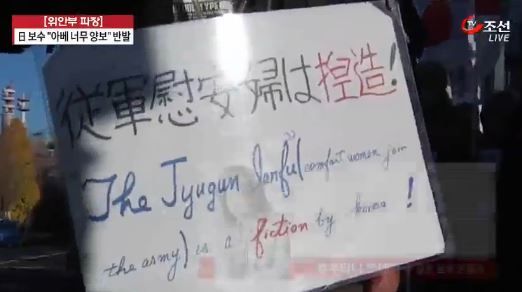 [위안부 파장]
日 보수 "아베 너무 양보" 반발
TV조선
LIVE
従軍慰安婦は捏造!
The Jyugun Ianfu (comfort women join
the army) is a fiction by korea !